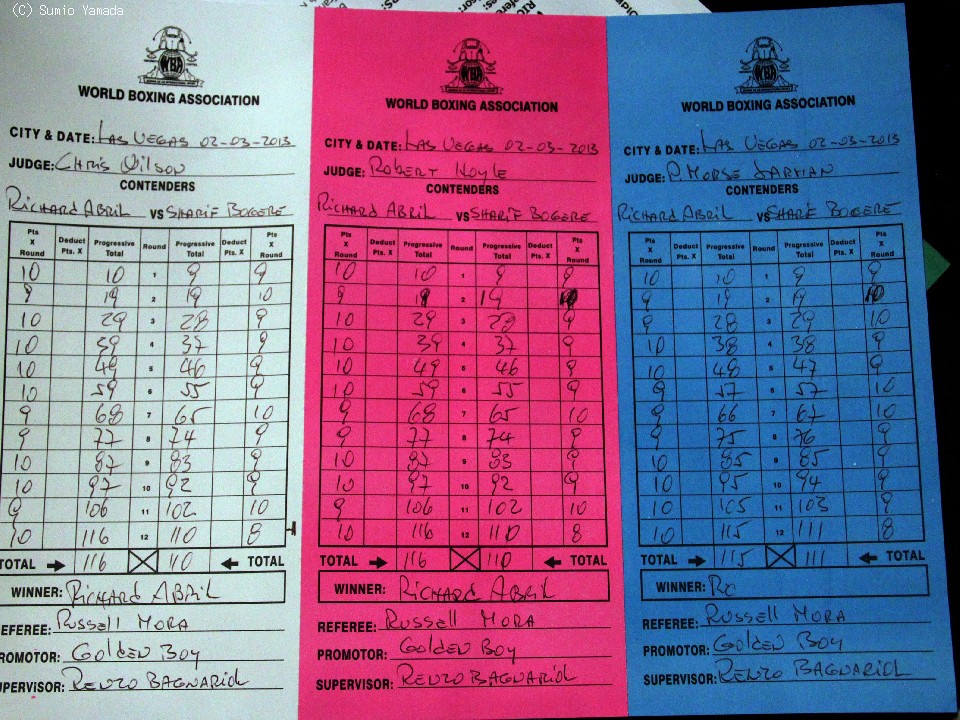 (C) Sumio Yamada
WBA
WORLD BOXING ASSOCIATION
CITY & DATE: LAS VEGAS 02-03-2013
JUDGE: CHRIS WILSON
CONTENDERS
RICHARD ABRIL VS SHARIF BOGERE
Pts X Round Deduct Pts. X Progressive Total Round Progressive Total Deduct Pts. X Pts X Round
10 10 1 9 9
9 19 2 19 10
10 29 3 28 9
10 39 4 37 9
10 49 5 46 9
10 59 6 55 9
9 68 7 65 10
9 77 8 74 9
10 87 9 83 9
10 97 10 92 9
9 106 11 102 10
10 116 12 110 8 -1
TOTAL 116 110 TOTAL
WINNER: RICHARD ABRIL
REFEREE: RUSSELL MORA
PROMOTOR: GOLDEN BOY
SUPERVISOR: RENZO BAGNARIOL
WBA
WORLD BOXING ASSOCIATION
CITY & DATE: LAS VEGAS 02-03-2013
JUDGE: ROBERT HOYLE
CONTENDERS
RICHARD ABRIL VS SHARIF BOGERE
Pts X Round Deduct Pts. X Progressive Total Round Progressive Total Deduct Pts. X Pts X Round
10 10 1 9 9
9 19 2 19 10
10 29 3 28 9
10 39 4 37 9
10 49 5 46 9
10 59 6 55 9
9 68 7 65 10
9 77 8 74 9
10 87 9 83 9
10 97 10 92 9
9 106 11 102 10
10 116 12 110 8
TOTAL 116 110 TOTAL
WINNER: RICHARD ABRIL
REFEREE: RUSSELL MORA
PROMOTOR: GOLDEN BOY
SUPERVISOR: RENZO BAGNARIOL
WBA
WORLD BOXING ASSOCIATION
CITY & DATE: LAS VEGAS 02-03-2013
JUDGE: P. MORSE JARMAN
CONTENDERS
RICHARD ABRIL VS SHARIF BOGERE
Pts X Round Deduct Pts. X Progressive Total Round Progressive Total Deduct Pts. X Pts X Round
10 10 1 9 9
9 19 2 19 10
9 28 3 29 10
10 38 4 38 9
10 48 5 47 9
9 57 6 57 10
9 66 7 67 10
9 75 8 76 9
10 85 9 85 9
10 95 10 94 9
10 105 11 103 9
10 115 12 111 8
TOTAL 115 111 TOTAL
WINNER: RC
REFEREE: RUSSELL MORA
PROMOTOR: GOLDEN BOY
SUPERVISOR: RENZO BAGNARIOL